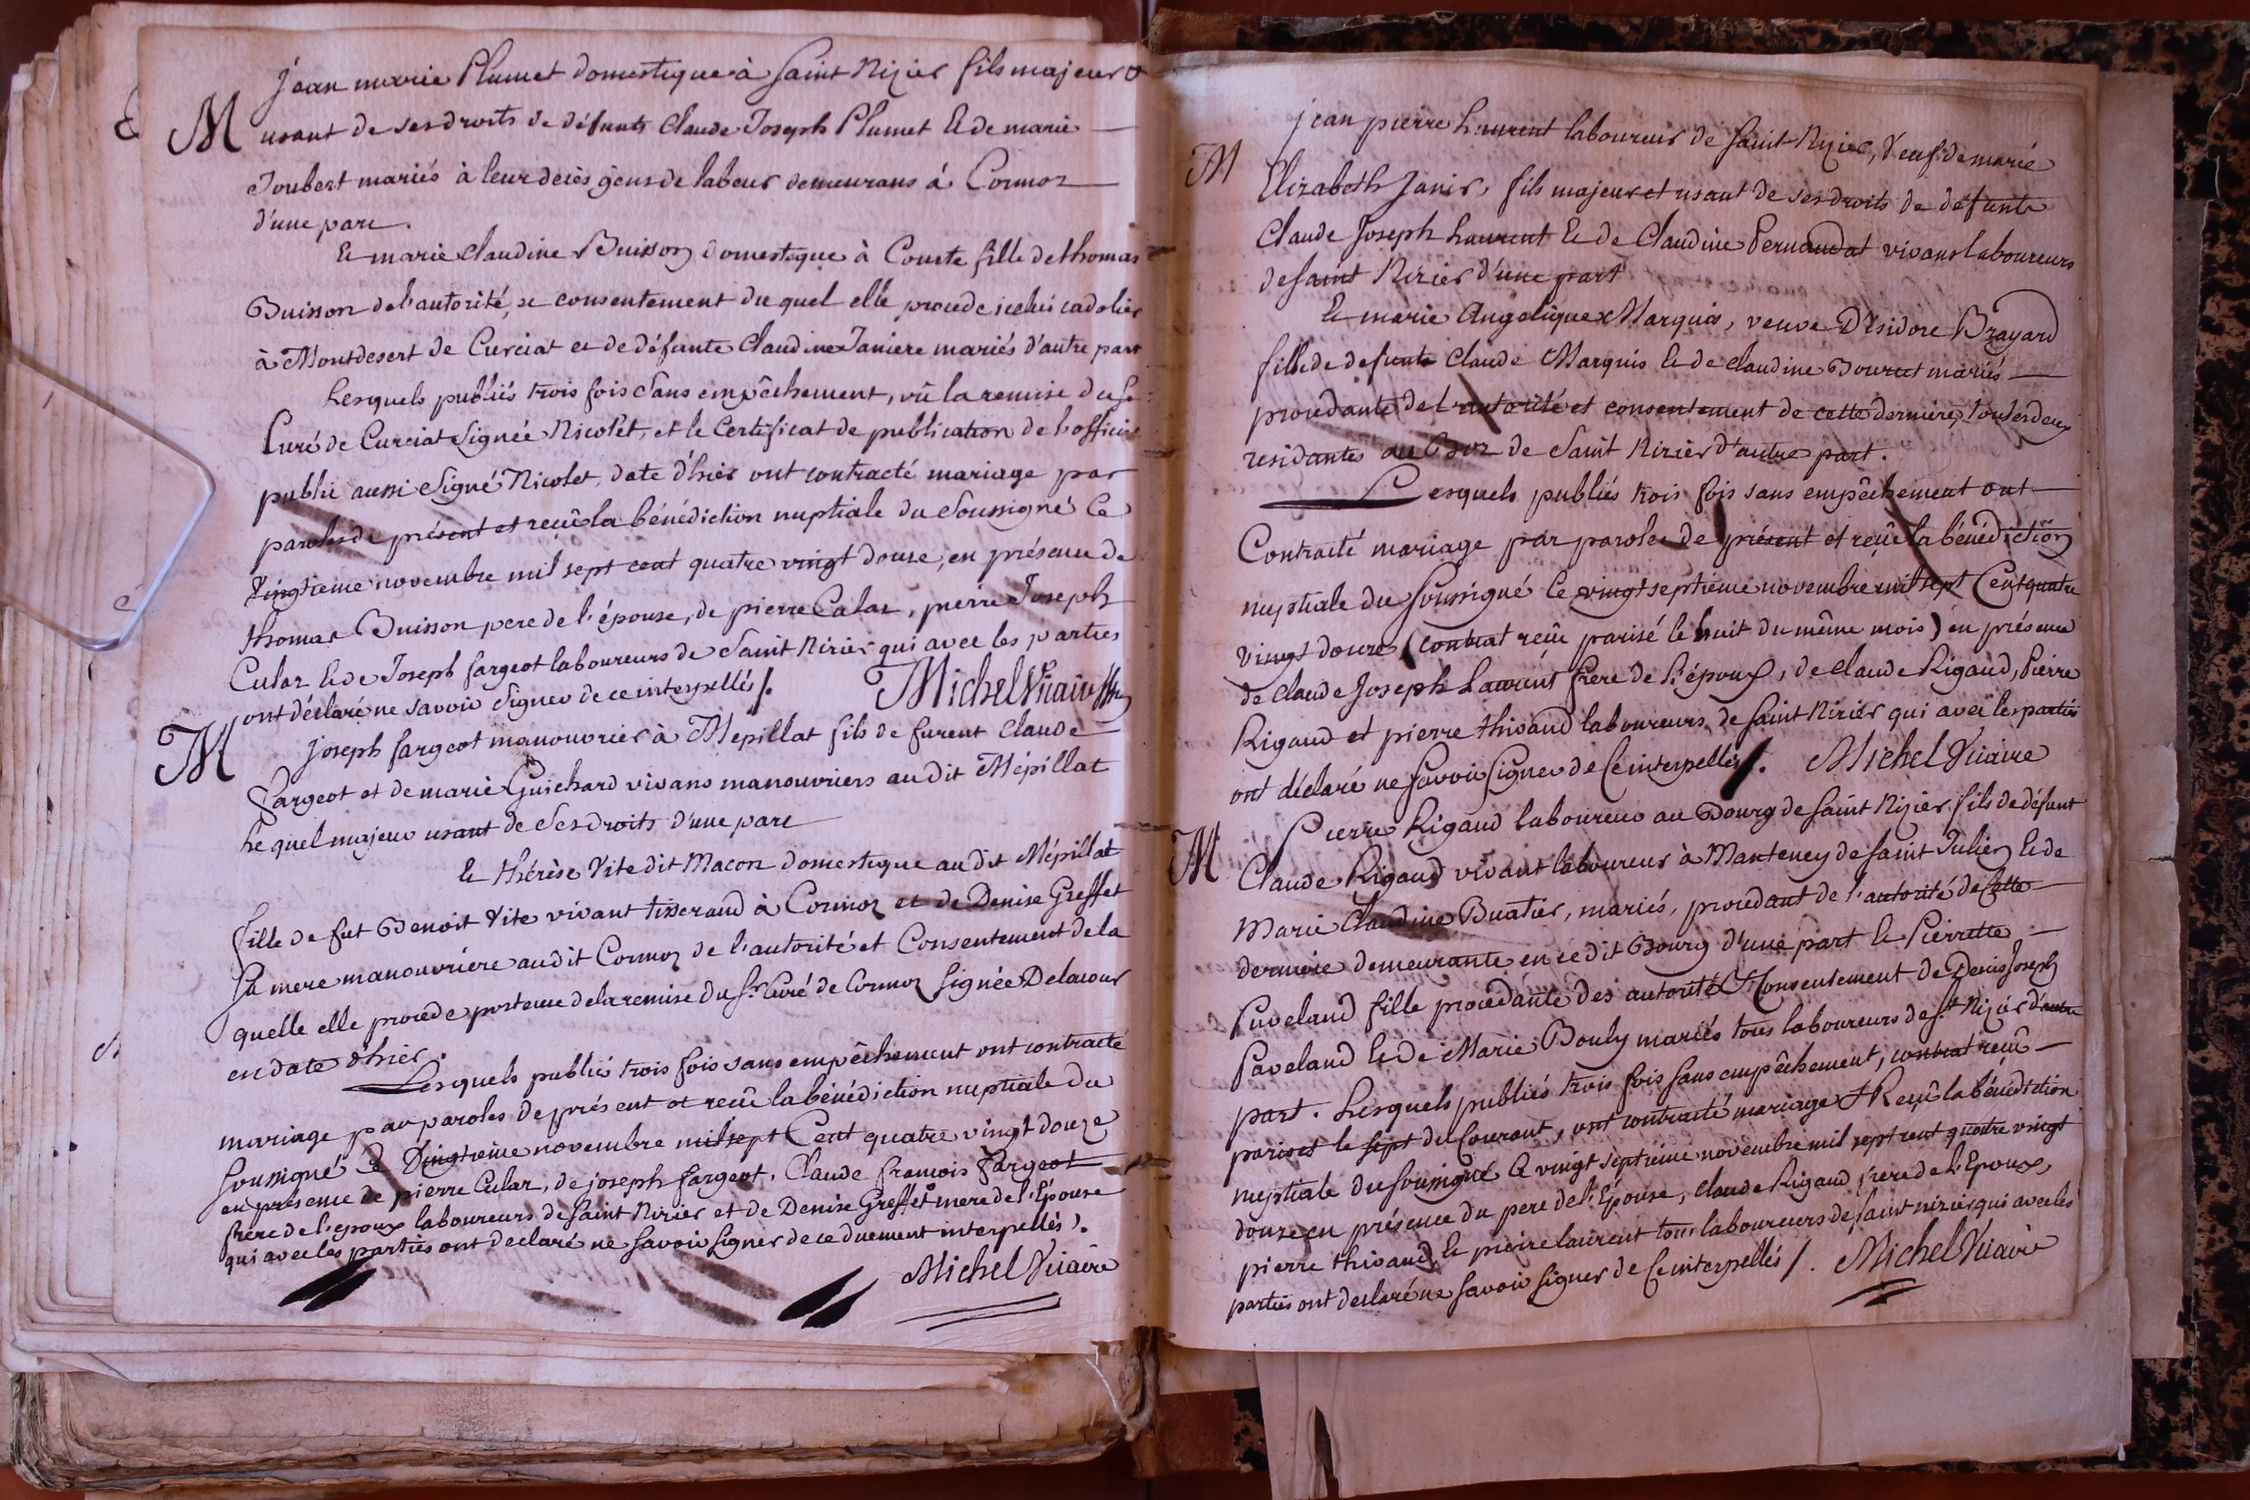 Jean marie Plumet domestique à Saint Nizier fils majeur &
M
usant de ses droits de défunts Claude Joseph Plumet & de marie
Joubert mariés à leur décès gens de labeur demeurans à Cormoz
d'une part.
& marie claudine Buisson domestique à Courte fille de thomas
Buisson de l'autorité, & consentement du quel elle procede icelui cadolier
à Montdesert de Curciat et de défunte Claudine Janiere mariés d'autre part
Lesquels publiés trois fois sans empêchement, vû la remise du Sr
Curé de Curciat Signée Nicolet, et le certificat de publication de l'officier
public aussi Signé Nicolet, date d'hier ont contracté mariage par
paroles de présent et reçu la bénédiction nuptiale du Soussigné Ce
Vingtieme novembre mil sept cent quatre vingt douze, en présence de
thomas Buisson pere de l'épouse, de pierre Culaz, pierre Joseph
Culaz & de Joseph fargeot laboureurs de Saint Nizier qui avec les parties
ont déclaré ne savoir signer de ce interpellés /. Michel Vicaire
M
Joseph fargeot manouvrier à Mepillat fils de furent Claude
Fargeot et de marie Guichard vivans manouvriers au dit Mépillat
Le quel majeur usant de ses droits d'une part
& thérèse Vite dit Macon domestique au dit Mépillat
fille de fut Benoit Vite vivant tisserand à Cormoz et de Denise Greffet
sa mere manouvriere audit Cormoz de l'autorité et Consentement de la
quelle elle procede porteuse de la remise du Sr. Curé de Cormoz Signée Delacour
en date d'hier.
Lesquels publiés trois fois sans empêchement ont contracté
mariage par paroles de présent et reçu la bénédiction nuptiale du
Soussigné ce Vingtieme novembre mil sept Cent quatre vingt douze
en présence de pierre Culaz, de joseph fargeot, Claude françois Fargeot
frere de l'epoux laboureurs de Saint Nizier et de Denise Greffet mere de l'Epouse
qui avec les parties ont declaré ne savoir signer de ce duement interpellés /.
Michel Vicaire
jean pierre Laurent laboureur de Saint Nizier, Veuf de marie
M
Elizabeth Janir, fils majeur et usant de ses droits de défunts
Claude Joseph Laurent & de Claudine Pernaudat vivans laboureurs
de saint Nizier d'une part
& marie Angelique Marquis, veuve D'isidore Brayard
fille de defunts Claude Marquis & de claudine Bourcet mariés
procedante de l'autorité et consentement de cette derniere, toutes deux
residantes au Boz de Saint Nizier d'autre part.
Lesquels publiés trois fois sans empêchement ont
Contracté mariage par paroles de présent et reçu la bénédiction
nuptiale du Soussigné Ce vingt septieme novembre mil sept Cent quatre
vingt douze (contrat reçu parisé le huit du même mois) en présence
de claude Joseph Laurent frere de l'époux, de claude Rigaud, Pierre
Rigaud et pierre thivaud laboureurs de Saint Nizier qui avec les parties
ont déclaré ne savoir signer de Ce interpellés /. Michel Vicaire
M
Pierre Rigaud laboureur au Bourg de Saint Nizier fils de défunt
Claude Rigaud vivant laboureur à Manteney de saint Julien & de
Marie Claudine Buatier, mariés, procedant de l'autorité de Cette
derniere demeurante en ce dit Bourg d'une part & Pierrette
Paveland fille procedante des autorité & Consentement de Denis Joseph
Paveland & de Marie Bouly mariés tous laboureurs de St Nizier d'autre
part. Lesquels publiés trois fois sans empêchement, contrat reçu
pariset le sept du Courant, ont contracté mariage & Reçu la bénédiction
nuptiale du soussigné Ce vingt septieme novembre mil sept cent quatre vingt
douze en présence du pere de l'Epouse, claude Rigaud frere de l'Epoux,
pierre thivaud, & pierre laurent tous laboureurs de saint nizier qui avec les
parties ont declaré ne savoir signer de Ce interpellés /. Michel Vicaire